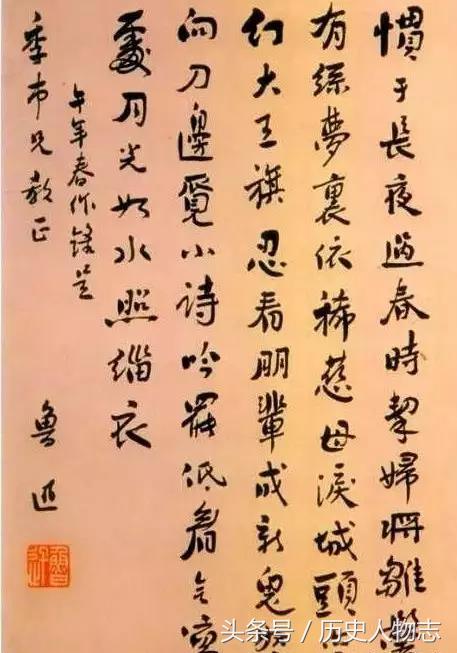 慣于長夜過春時挈婦將雛鬢
有絲夢裏依稀慈母淚城頭
幻大王旗忍看朋輩成新鬼
向刀邊覓小詩吟罷低眉無寫
處月光如水照緇衣
午年春作錄呈
季市兄教正
魯迅
魯迅
头条号 / 历史人物志